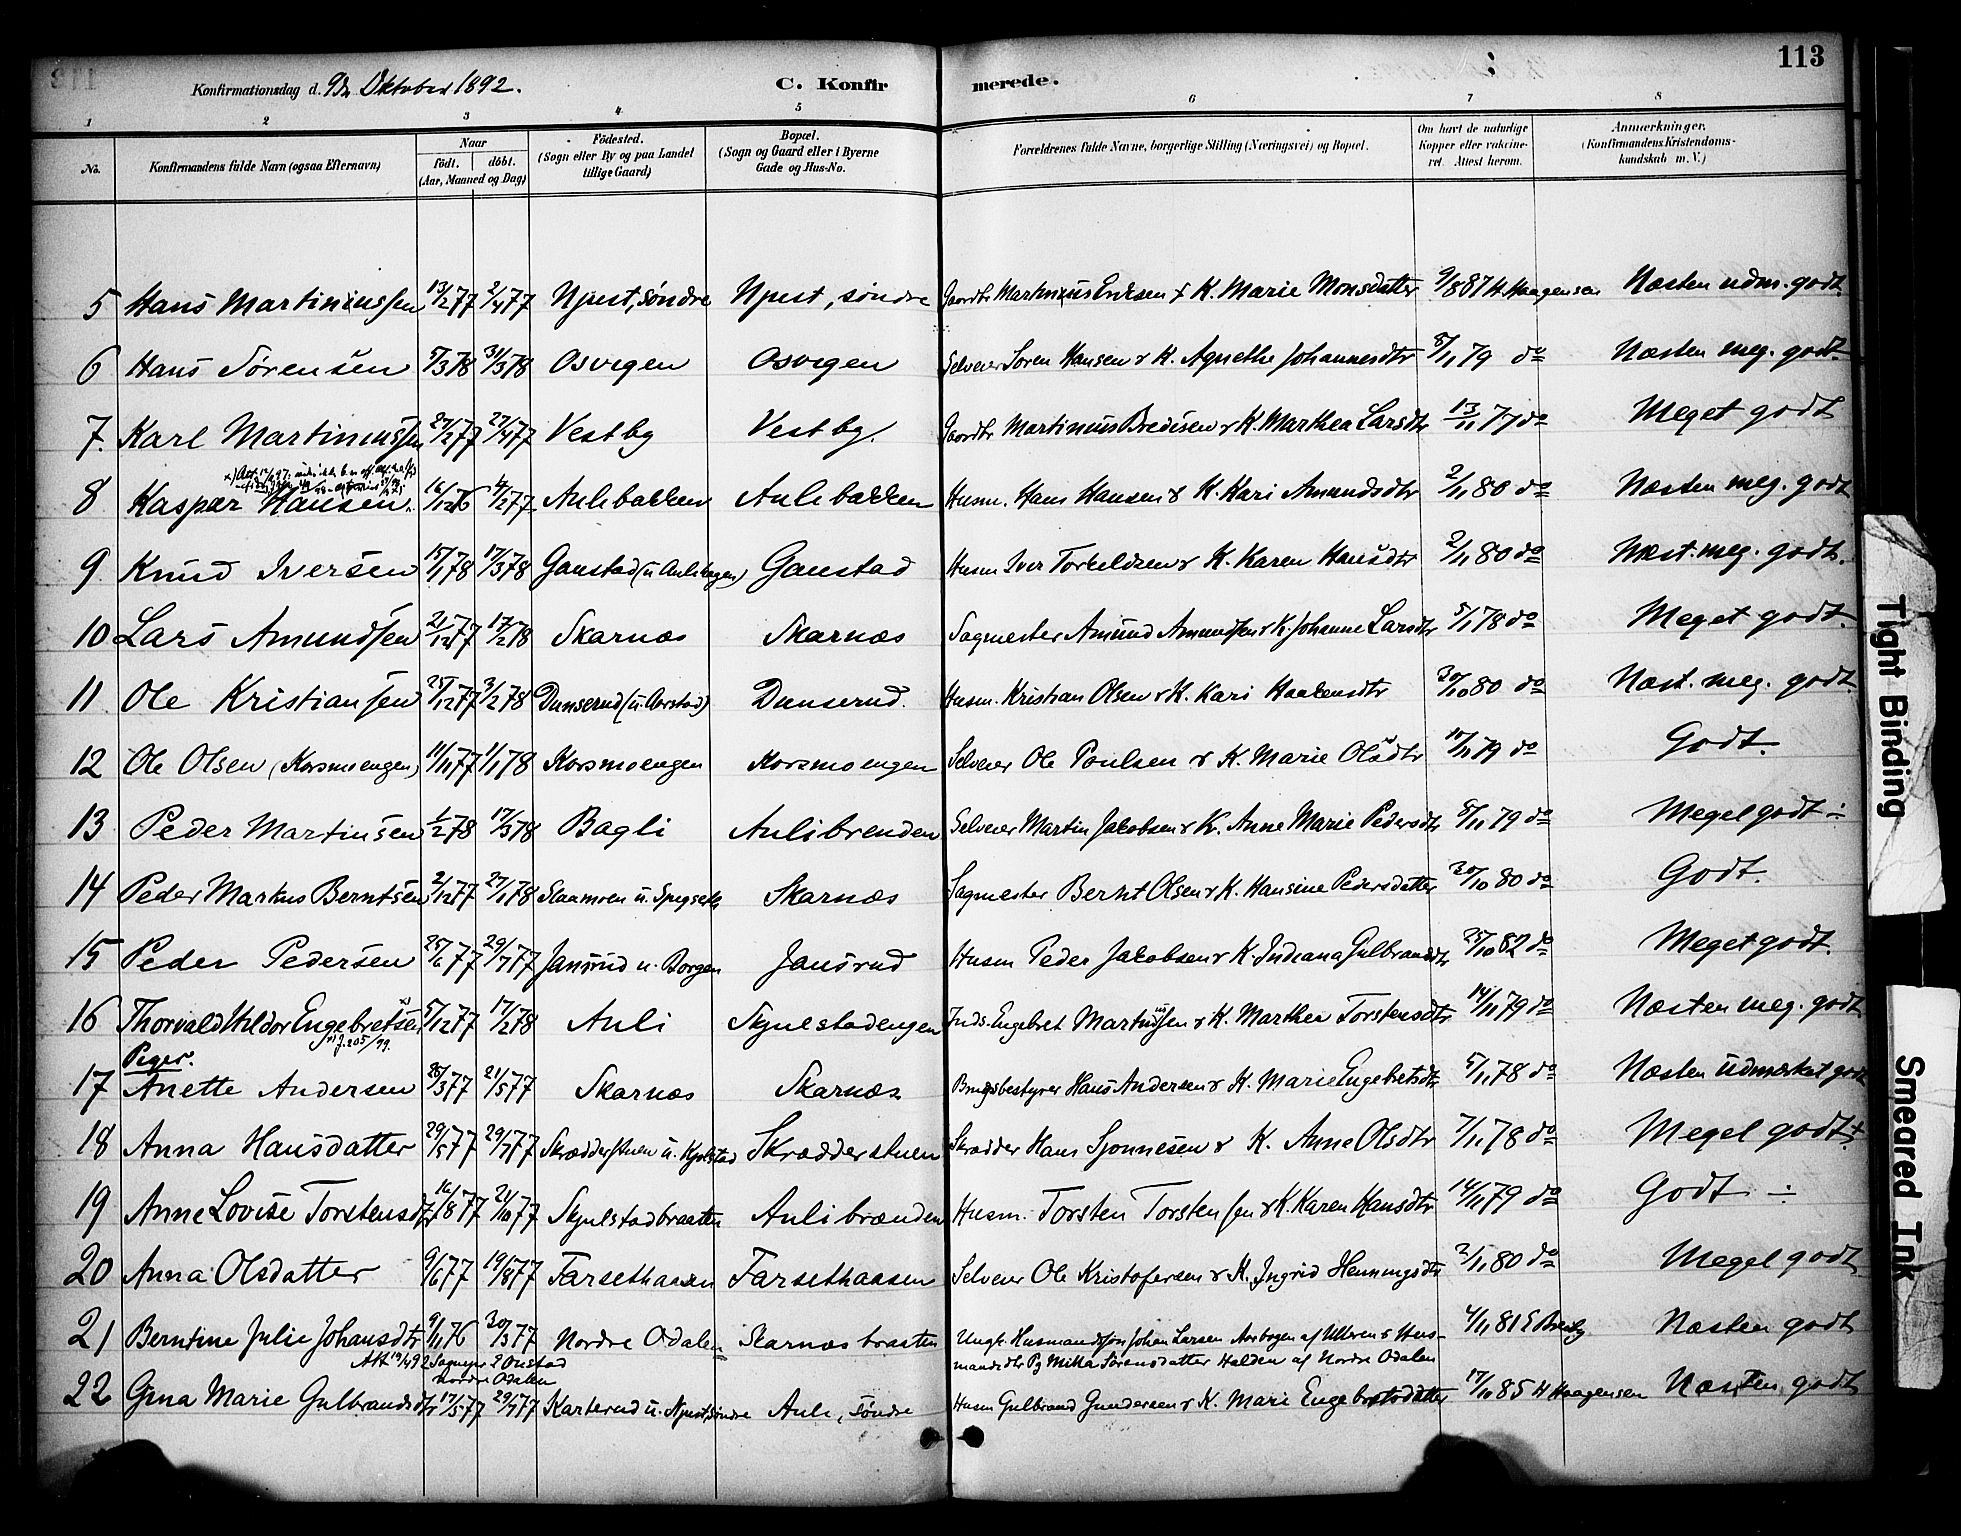 113
Konfirmationsdag d. 9de Oktober 1892. C. Konfir merede.
1 2 3 4 5 6 7 8
No. Konfirmandens fulde Navn (ogsaa Efternavn) Naar født. døbt. (Aar, Maaned og Dag) Fødested. (Sogn eller By og paa Landet tillige Gaard) Bopæl. (Sogn og Gaard eller i Byerne Gade og Hus-No. Forældrenes fulde Navne, borgerlige Stilling (Næringsvei) og Bopæl. Om havt de naturlige Kopper eller vakcineret. Attest herom. Anmærkninger. (Konfirmandens Kristendomskundskab m. V.)
5 Hans Martiniussen 13/2 77 2/4 77 Npest, søndre Npest, søndre Gaardbr Martinius Eriksen & K. Marie Monsdatter 9/8 87 H. Haagensen Næsten udm. godt.
6 Hans Sørensen 5/3 78 31/3 78 Osvegen Osvegen Selveier Søren Hansen & K. Agnethe Johannesdtr 8/11 79 do Næsten meg. godt
7. Karl Martiniussen 27/2 77 27/4 77 Vestby Vestby. Gaardbr Martinius Bredesen & K. Marthea Larsdtr 13/11 77 do Meget godt
8 Kaspar Hansen. 16/12 76 4/2 77 Aulibakken Aulibakken Husm. Hans Hansen & K. Kari Amundsdtr 2/11 80 do Næsten meg. godt
9 Knud Iversen 15/1 78 17/3 78 Ganstad (u Aulihagen) Ganstad Husm Iver Torkeldsen & K. Karen Hansdtr 2/11 80 do Næst. meg. godt.
10 Lars Amundsen 21/12 77 17/2 78 Skarnæs Skarnæs Sagmester Amund Amundsen & K. Johanne Larsdtr 5/1 78 do Meget godt.
11 Ole Kristiansen 25/12 77 3/2 78 Dunserud (u. Aarstad) Dunserud. Husm. Kristian Olsen & K. Kari Haakensdtr 30/10 80 do Næst. meg. godt.
12 Ole Olsen (Korsmoengen) 11/11 77 1/1 78 Korsmoengen Korsmoengen Selveier Ole Poulsen & K. Marie Olsdtr 17/11 79 do Godt.
13 Peder Martinsen 1/2 78 17/3 78 Bagli Aulibrenden Selveier Martin Jakobsen & K. Anne Marie Pedersdtr 8/11 79 do Meget godt ÷
14 Peder Markus Berntsen 2/12 77 27/1 78 Slaamoen u. Spigseth Skarnæs Sagmester Bernt Olsen & K. Hansine Pedersdatter 20/10 80 do Godt.
15 Peder Pedersen 25/6 77 29/7 77 Jansrud u. Borgen Jansrud Husm Peder Jakobsen & K. Indiana Gulbrandsdtr 25/10 82 do Meget godt.
16 Thorvald Hildor Engebretsen 5/12 77 17/2 78 Auli Skjulstadengen Inds. Engebret Martinussen & K. Marthea Torstensdtr 14/11 79 do Næsten meg. godt
J. 205/99.
Piger.
17 Anette Andersen 28/3 77 21/5 77 Skarnæs Skarnæs Brugsbestyrer Hans Andersen & K. Marie Engebretsdtr 5/11 78 do Næsten udmærket godt
18 Anna Hansdatter 29/5 77 29/7 77 Skrædderstuen u. Kjølstad Skrædderstuen Skrædder Hans Sjonnesen & K. Anne Olsdtr 7/11 78 do Meget godt +
19 Anne Lovise Torstensdtr 16/8 77 21/10 77 Skjulstadbraatten Aulibrænden Husm. Torsten Torstensen & K. Karen Hansdtr 14/11 79 do Godt ÷
20 Anna Olsdatter 9/6 77 19/8 77 Farsethaasen Farsethaasen Selveier Ole Kristofersen & K. Ingrid Henningsdtr 2/11 80 do Meget godt
21 Berntine Julie Johansdtr 9/11 76 30/3 77 Nordre Odalen Skarnæsbraaten Ungk. Husmandssøn Johan Larsen Aarbogen af Ulleren & Husmandsdtr Pg Milla Sørensdatter Halden af Nordre Odalen 4/11 81 E Bredby Næsten godt
Att 19/4 92 Sognepr. Onstad Nordre Odalen
22 Gina Marie Gulbrandsdtr 17/5 77 29/7 77 Karterud u. Npest, søndre Auli, søndre Husm Gulbrand Gundersen & K. Mari Engebretsdatter 17/10 85 H Haagensen Næsten godt
Tight Binding
Smeared Ink